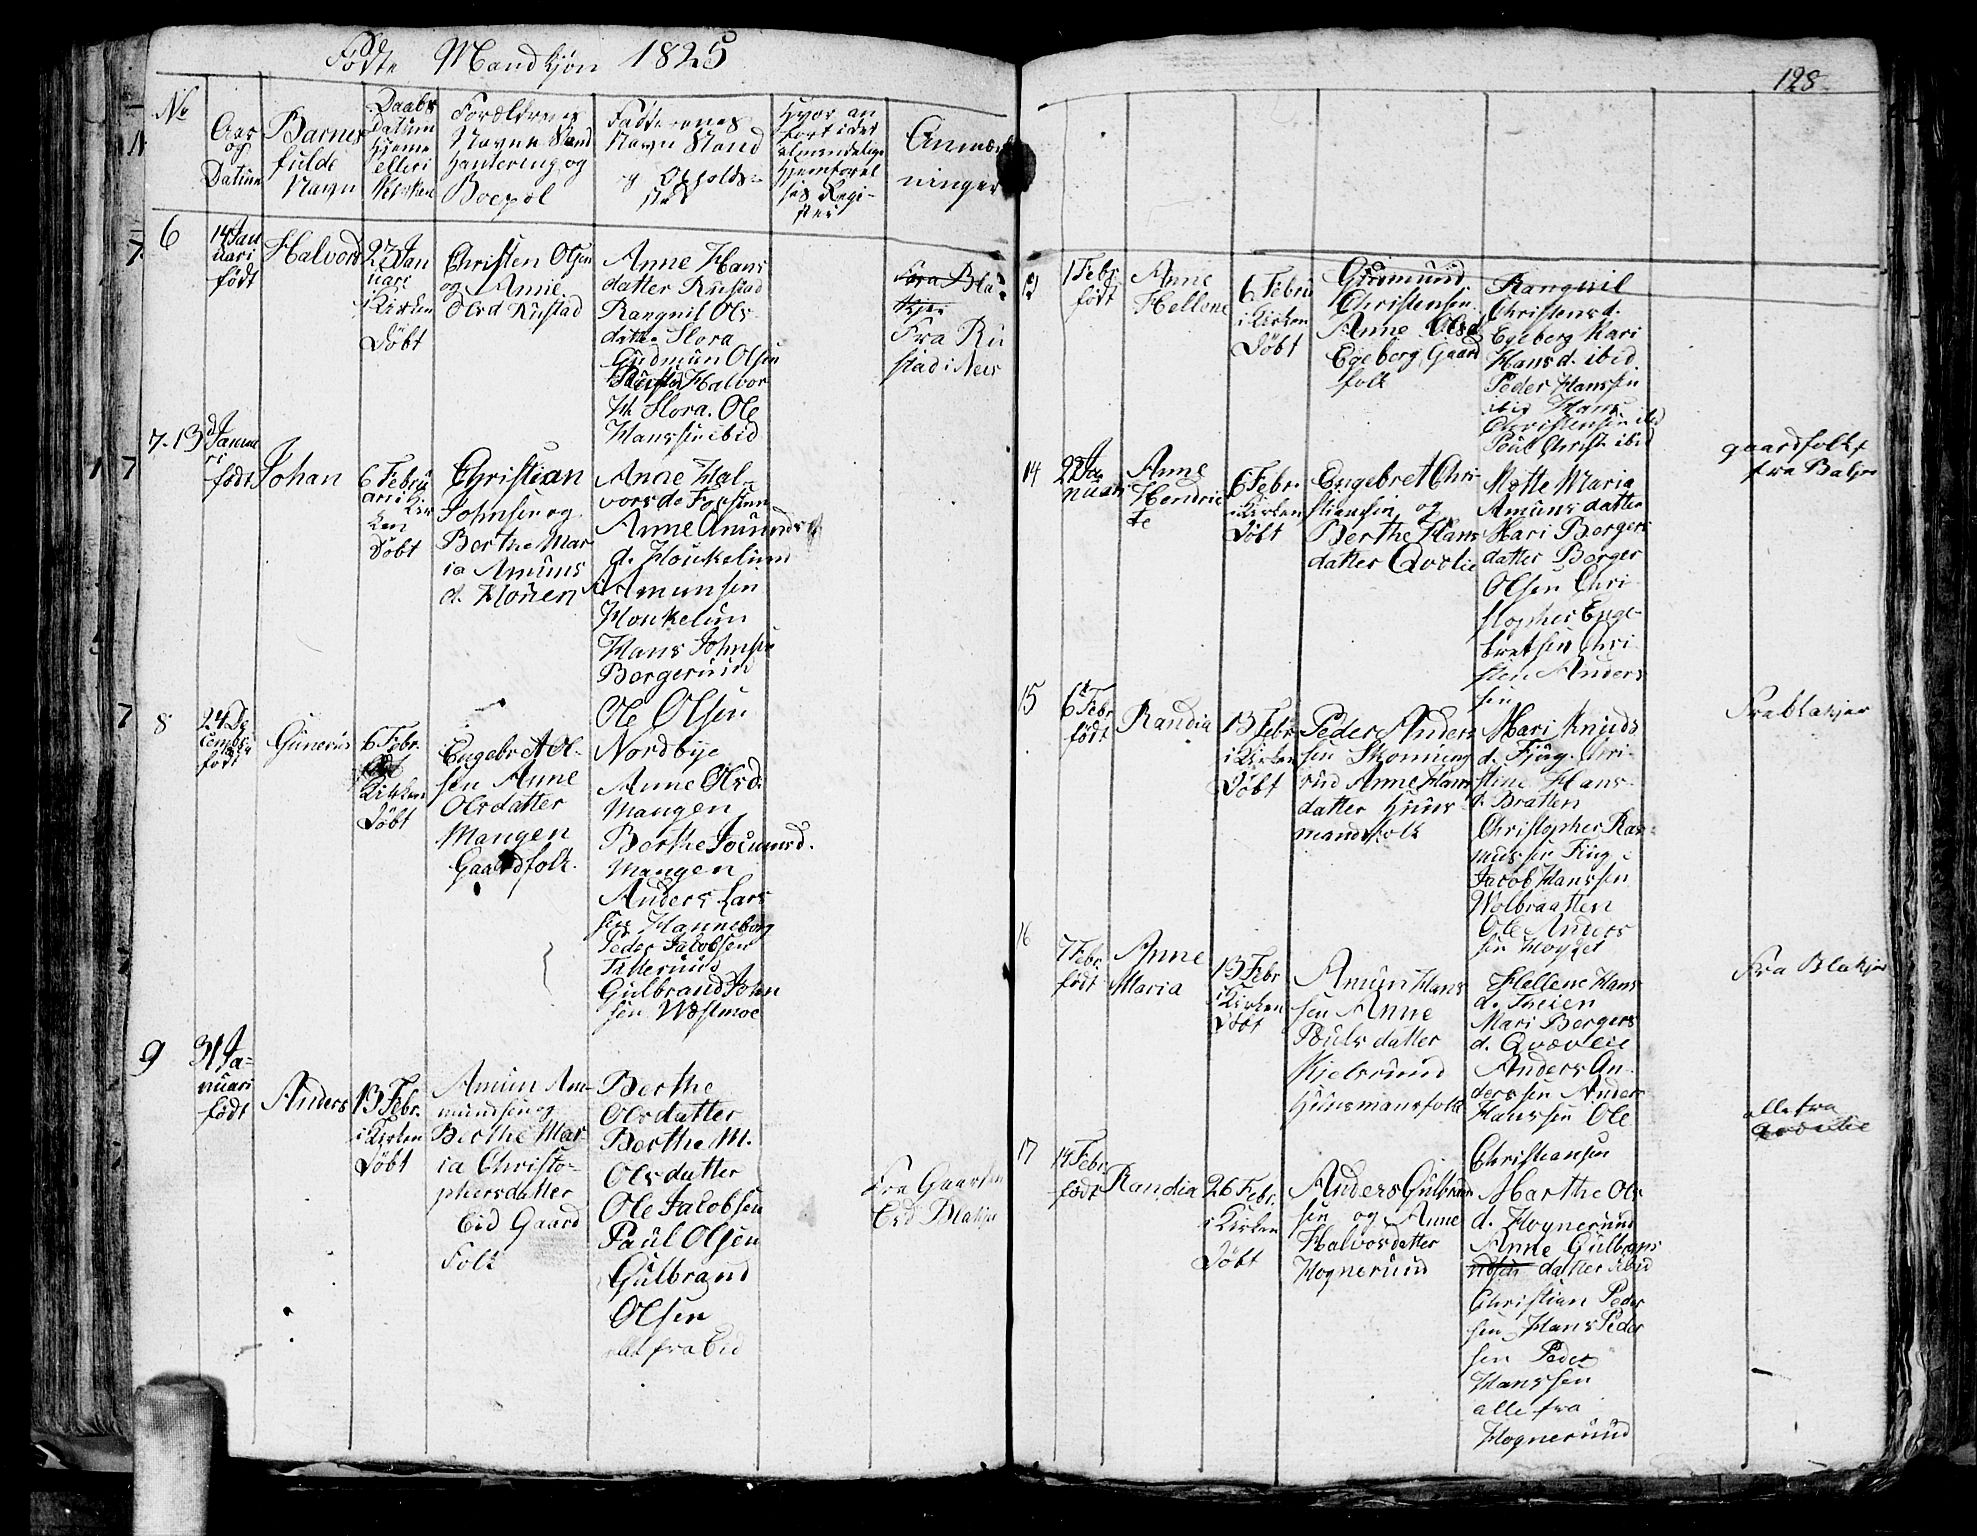 Födte Mandkjön 1825
No
Aar
og
Datum
Barnets
fulde
Navn
Daabs
Datum
hjeme
eller i
Kirken
Forældrenes
Navne Stand
Handtering og
Boepæl
Fadderenes
Navn Stand
og Opholds-
sted
Hvor an
fört i det
almindelige
Anmærk
ninger
6
14 Jan
uari
födt
Halvord
27 Jan
uari
i Kirken
Döbt
Christen Olsen
og Anne
Olsd Rustad
Anne Hans
datter Rustad
Rangnil Ols
datter Slora
Gudmun Olsen
Rustad Halvor
H. Slora. Ole
Hanssen ibid
Fra Bla
kjer
Fra Ru
stad i Nees
7
13 Janua
ri
födt
Johan
6 Febru
ari i Kir
ken
Döbt
Christian
Johnsen og
Berthe Mar
ia Amuns
d. Honen
Anne Hal
vorsd Forsten
Anne Amunds
d. Houkelund
Amunsen
Houkelun
Hans Johnsen
Borgerund
Ole Olsen
Nordbye
8
24 De
cember
födt
Gunerius
6 Febr.
Kirken
Döbt
Engebr. Ol-
sen Anne
Olsdatter
Mangen
Gaardfolk.
Anne Olsd.
Mangen
Berthe Jocumsd.
Mangen
Anders Lars
sen Hanneborg
Peder Jacobsen
Tillerund
Gulbrand John
sen Westmoe
9
31 Ja-
nuari
födt
Anders
13 Febr.
i Kirken
Döbt
Amun Am-
mundsen og
Berthe Mar
ia Christo-
phersdatter
Eid Gaard
Folk
Berthe
Olsdatter
Berthe M.
Olsdatter
Ole Jacobsen
Paul Olsen
Gulbrand
Olsen
alle fra Eid
Fra Gaarden
Eid Blakjer
128
13
1 Febr
födt
Anne
Hellene
6 Febru
i Kirken
Döbt
Gudmund
Christensen
Anne Olsd
Egeberg Gaard
folk
Rangnil
Christensd.
Egeberg Kari
Hansd. ibid
Peder Hanssen
ibid Hans
Christensen ibid
Poul Christe ibid
gaardfolk
fra Blakjer
14
22 Ja
nuari
Anne
Hendric
te
6 Febr.
i Kirken
Döbt
Engebret Chri-
stiansen og
Berthe Hans
datter Qvævlie
Mette Maria
Amunsdatter
Mari Borgers
datter Borger
Olsen Chri-
stopher Enge-
bretsen Chri-
sten Anders
sen
15
6 Febr
födt
Randia
13 Febr
i Kirken
Döbt
Peder Anders
sen Skonning
rud Anne Hans
datter Huus
mandsfolk
Mari Knuds
d. Fjug. Chri-
stine Hans-
d. Bratten
Christopher Ras-
mussen Fjug
Jacob Hanssen
Wolbraatten
Ole Anders
sen Hoyget
Fra Blakjer
16
7 Febr.
födt
Anne
Maria
13 Febr
i Kirken
Döbt
Amun Hans
sen Anne
Poulsdatter
Kjelsrund
Huusmansfolk
Hellene Hans
d. Theien
Mari Borgers
d. Qvævlie
Anders An-
derssen Ander
Hanssen Ole
Christiansen
Fra Blakjer
alle fra
Qvævlie
17
14 Febr.
födt
Randia
26 Febr.
i Kirken
Döbt
Anders Gulbrand
sen og Anne
Halvorsdatter
Hognerund
Marthe Ols
d. Hognerund
Anne Gulbrans
datter ibid
Christian Peder
sen Hans Peder
sen Peder
Hanssen
alle fra
Hognerund